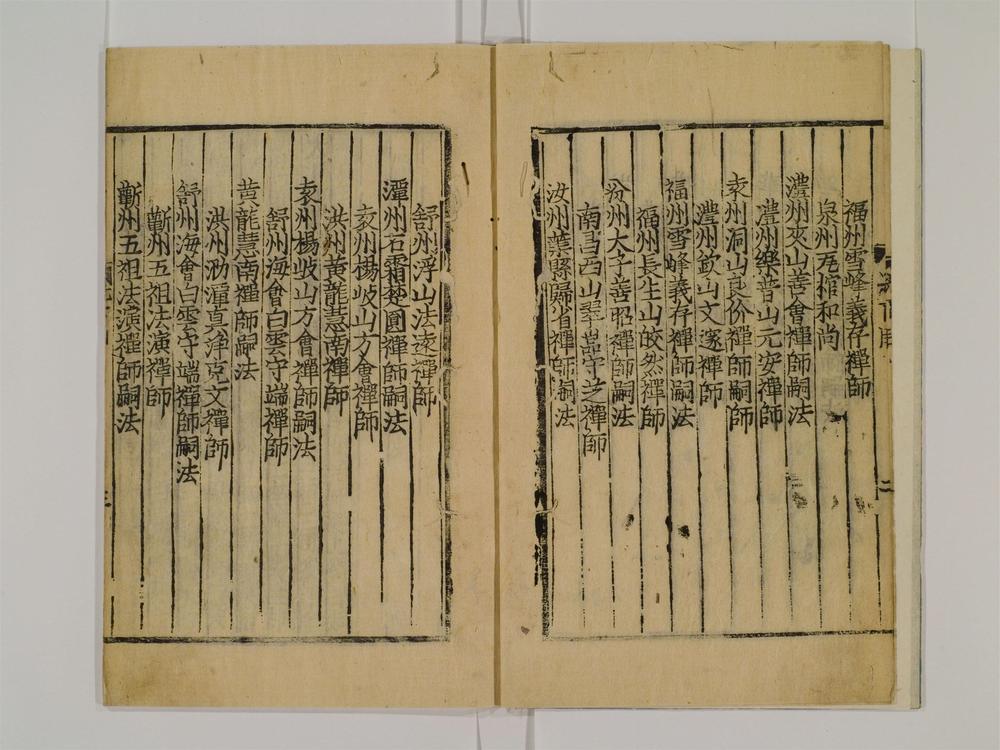 福州雪峰義存禪師
泉州瓦棺和尚
澧州夾山善會禪師嗣法
澧州樂普山元安禪師
袁州洞山良价禪師嗣師
澧州欽山文邃禪師
福州雪峰義存禪師嗣法
福州長生山皎然禪師
汾州大子善昭禪師嗣法
南昌西山翠嵓守芝禪師
汝州葉縣歸省禪師嗣法
二
舒州浮山法遠禪師
潭州石霜楚圓禪師嗣法
袁州楊岐山方會禪師
洪州黃龍慧南禪師
袁州楊岐山方會禪師嗣法
舒州海會白雲守端禪師
黃龍慧南禪師嗣法
洪州泐潭真淨克文禪師
舒州海會白雲守端禪師嗣法
蘄州五祖法演禪師
蘄州五祖法演禪師嗣法